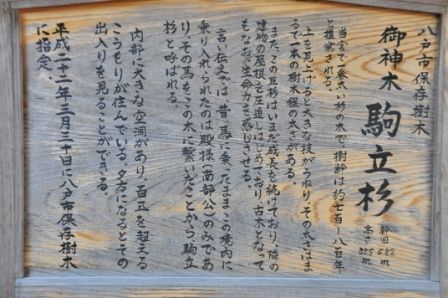 八戸市保存樹木
御神木 駒立杉
幹回 5.82m
高さ 35.5m
当宮で最太い杉の木で、樹幹は約七百~八百年
と推察される。
上を見上げると大きな枝がうねり、その太さはま
るで一本の樹木程の太さがある。
また、この巨杉はいまだ成長を続けており、隣の
建物の屋根を圧迫しはじめており古木となって
もなお、生命力を感じさせる。
言い伝えでは、昔、馬に乗ったままこの境内に
乗り入れられたのは殿様(南部公)のみであ
り、その馬をこの木に繋いだことから駒立
杉と呼ばれる。
内部に大きな空洞があり、百匹を超える
こうもりが住んでいる。夕方になるとその
出入りを見ることができる。
平成二十二年三月三十日に八戸市保存樹木
に指定。